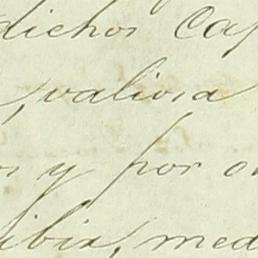 dichos Cap
, valiosa
os y por o
libia, med